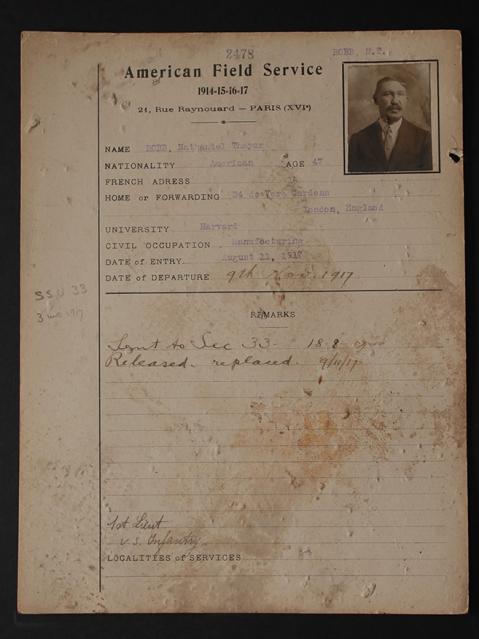 2478
ROBB, N.T.
American Field Service
1914-15-16-17
21, Rue Raynouard — PARIS (XVIe)
NAME ROBB, Nathaniel Thayer
NATIONALITY American AGE 47
FRENCH ADRESS
HOME or FORWARDING 24 de Vere Gardens
London, England
UNIVERSITY Harvard
CIVIL OCCUPATION Manufacturing
DATE of ENTRY August 11, 1917
DATE of DEPARTURE 9th Nov. 1917
SSU 33
3 mo 1917
REMARKS
Sent to Sec 33 - 18-8
Released - replaced 9/11/17
1st Lieut
U.S. Infantry
LOCALITIES of SERVICES